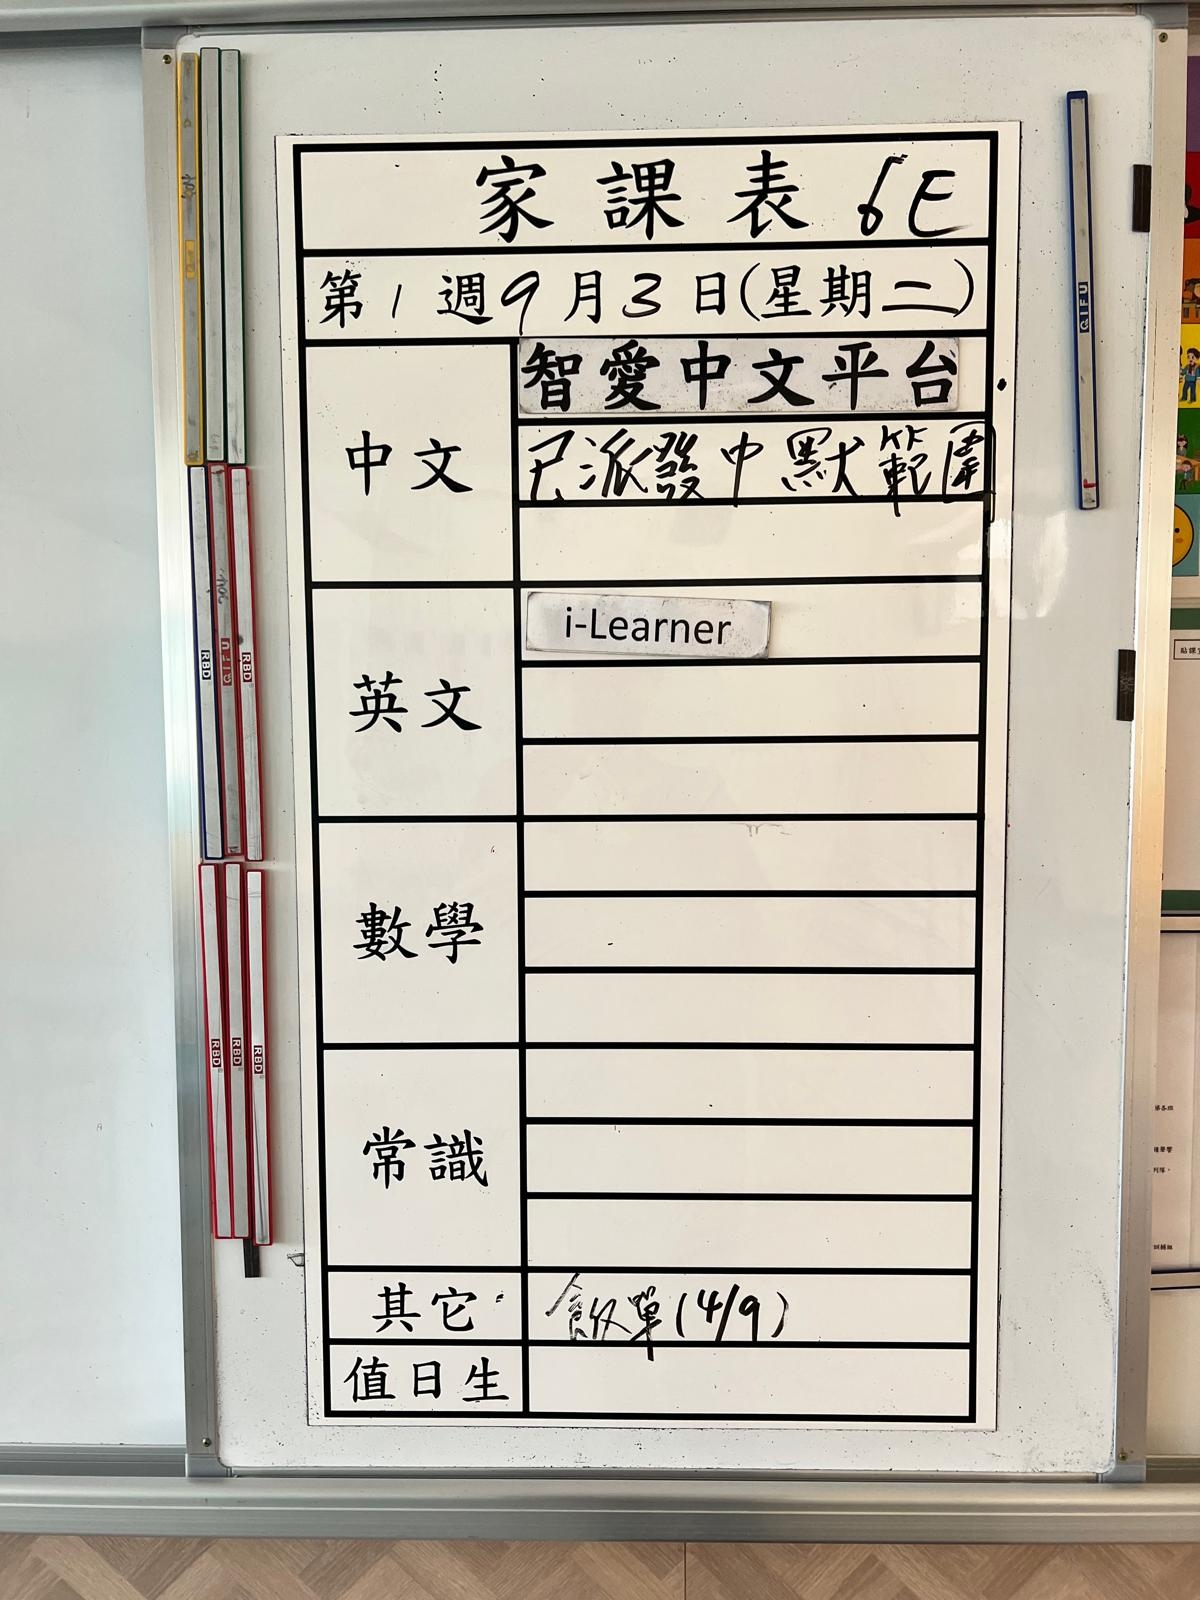 家課表 6E
第1週9月3日(星期二)
中文
智愛中文平台
已派發中默範圍
英文
i-Learner
數學
常識
其它
飯單(4/9)
值日生
RBD
QIFU
RBD
RBD
RBD
RBD
QIFU